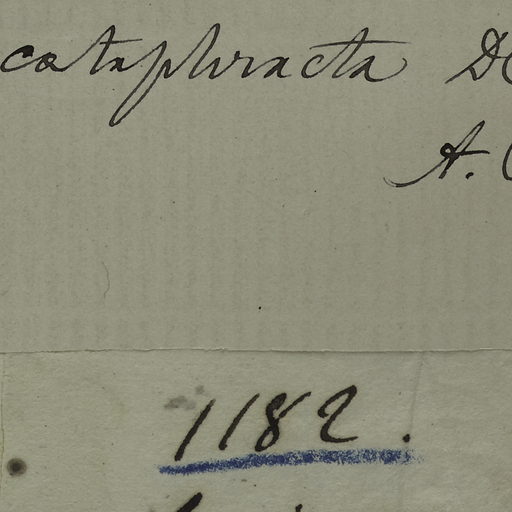 cataphracta D
A.
1182.